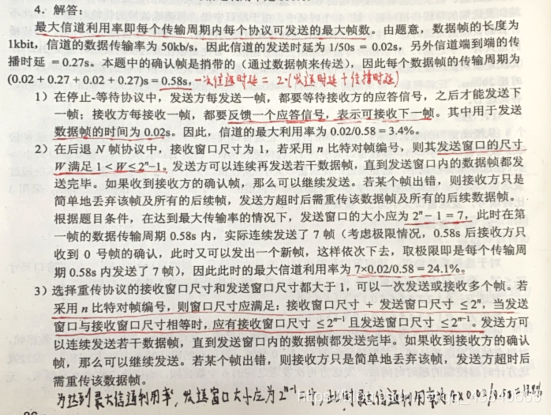 4. 解答:
最大信道利用率即每个传输周期内每个协议可发送的最大帧数。由题意，数据帧的长度为
1kbit，信道的数据传输率为 50kb/s，因此信道的发送时延为 1/50s = 0.02s，另外信道端到端的传
播时延 = 0.27s。本题中的确认帧是捎带的（通过数据帧来传送），因此每个数据帧的传输周期为
(0.02 + 0.27 + 0.02 + 0.27)s = 0.58s。一次信道时延 = 2·(发送时延 + 传播时延)
1）在停止-等待协议中，发送方每发送一帧，都要等待接收方的应答信号，之后才能发送下
一帧；接收方每接收一帧，都要反馈一个应答信号，表示可接收下一帧。其中用于发送
数据帧的时间为 0.02s。因此，信道的最大利用率为 0.02/0.58 = 3.4%。
2）在后退 N 帧协议中，接收窗口尺寸为 1，若采用 n 比特对帧编号，则其发送窗口的尺寸
W 满足 1 < W ≤ 2ⁿ−1。发送方可以连续再发送若干数据帧，直到发送窗口内的数据帧都发
送完毕。如果收到接收方的确认帧，那么可以继续发送。若某个帧出错，则接收方只是
简单地丢弃该帧及所有的后续帧，发送方超时后需重传该数据帧及所有的后续数据帧。
根据题目条件，在达到最大传输率的情况下，发送窗口的大小应为 2ⁿ − 1 = 7，此时在第
一帧的数据传输周期 0.58s 内，实际连续发送了 7 帧（考虑极限情况，0.58s 后接收方只
收到 0 号帧的确认，此时又可以发出一个新帧，这样依次下去，取极限即是每个传输周
期 0.58s 内发送了 7 帧），因此此时的最大信道利用率为 7×0.02/0.58 = 24.1%。
3）选择重传协议的接收窗口尺寸和发送窗口尺寸都大于 1，可以一次发送或接收多个帧。若
采用 n 比特对帧编号，则窗口尺寸应满足：接收窗口尺寸 + 发送窗口尺寸 ≤ 2ⁿ，当发送
窗口与接收窗口尺寸相等时，应有接收窗口尺寸 ≤ 2ⁿ⁻¹ 且发送窗口尺寸 ≤ 2ⁿ⁻¹。发送方可
以连续发送若干数据帧，直到发送窗口内的数据帧都发送完毕。如果收到接收方的确认
帧，那么可以继续发送。若某个帧出错，则接收方只是简单地丢弃该帧，发送方超时后
需重传该数据帧。
为达到最大信道利用率，发送窗口大小应为 2ⁿ⁻¹ = 4，此时最大信道利用率为 4×0.02/0.58 =